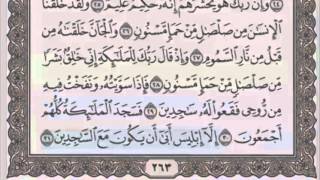 وَإِنَّ رَبَّكَ هُوَ يَحْشُرُهُمْ إِنَّهُ حَكِيمٌ عَلِيمٌ ٢٥ وَلَقَدْ خَلَقْنَا
ٱلْإِنسَٰنَ مِن صَلْصَٰلٍ مِّنْ حَمَإٍ مَّسْنُونٍ ٢٦ وَٱلْجَآنَّ خَلَقْنَٰهُ مِن
قَبْلُ مِن نَّارِ ٱلسَّمُومِ ٢٧ وَإِذْ قَالَ رَبُّكَ لِلْمَلَٰٓئِكَةِ إِنِّى خَٰلِقٌۢ بَشَرًا
مِّن صَلْصَٰلٍ مِّنْ حَمَإٍ مَّسْنُونٍ ٢٨ فَإِذَا سَوَّيْتُهُۥ وَنَفَخْتُ فِيهِ
مِن رُّوحِى فَقَعُوا۟ لَهُۥ سَٰجِدِينَ ٢٩ فَسَجَدَ ٱلْمَلَٰٓئِكَةُ كُلُّهُمْ
أَجْمَعُونَ ٣٠ إِلَّآ إِبْلِيسَ أَبَىٰٓ أَن يَكُونَ مَعَ ٱلسَّٰجِدِينَ ٣١
٢٦٣